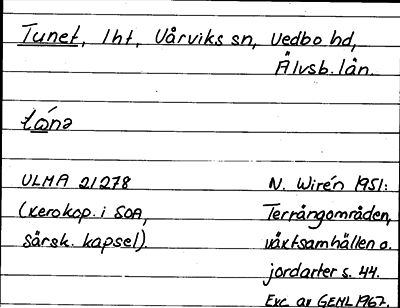 Tunet, lht, Vårviks sn, Vedbo hd,
Älvsb. län.
tónə
ULMA 21278
(xerokop. i SOA,
särsk. kapsel).
N. Wirén 1951:
Terrängområden,
växtsamhällen o.
jordarter s. 44.
Exc. av GEHL 1967.